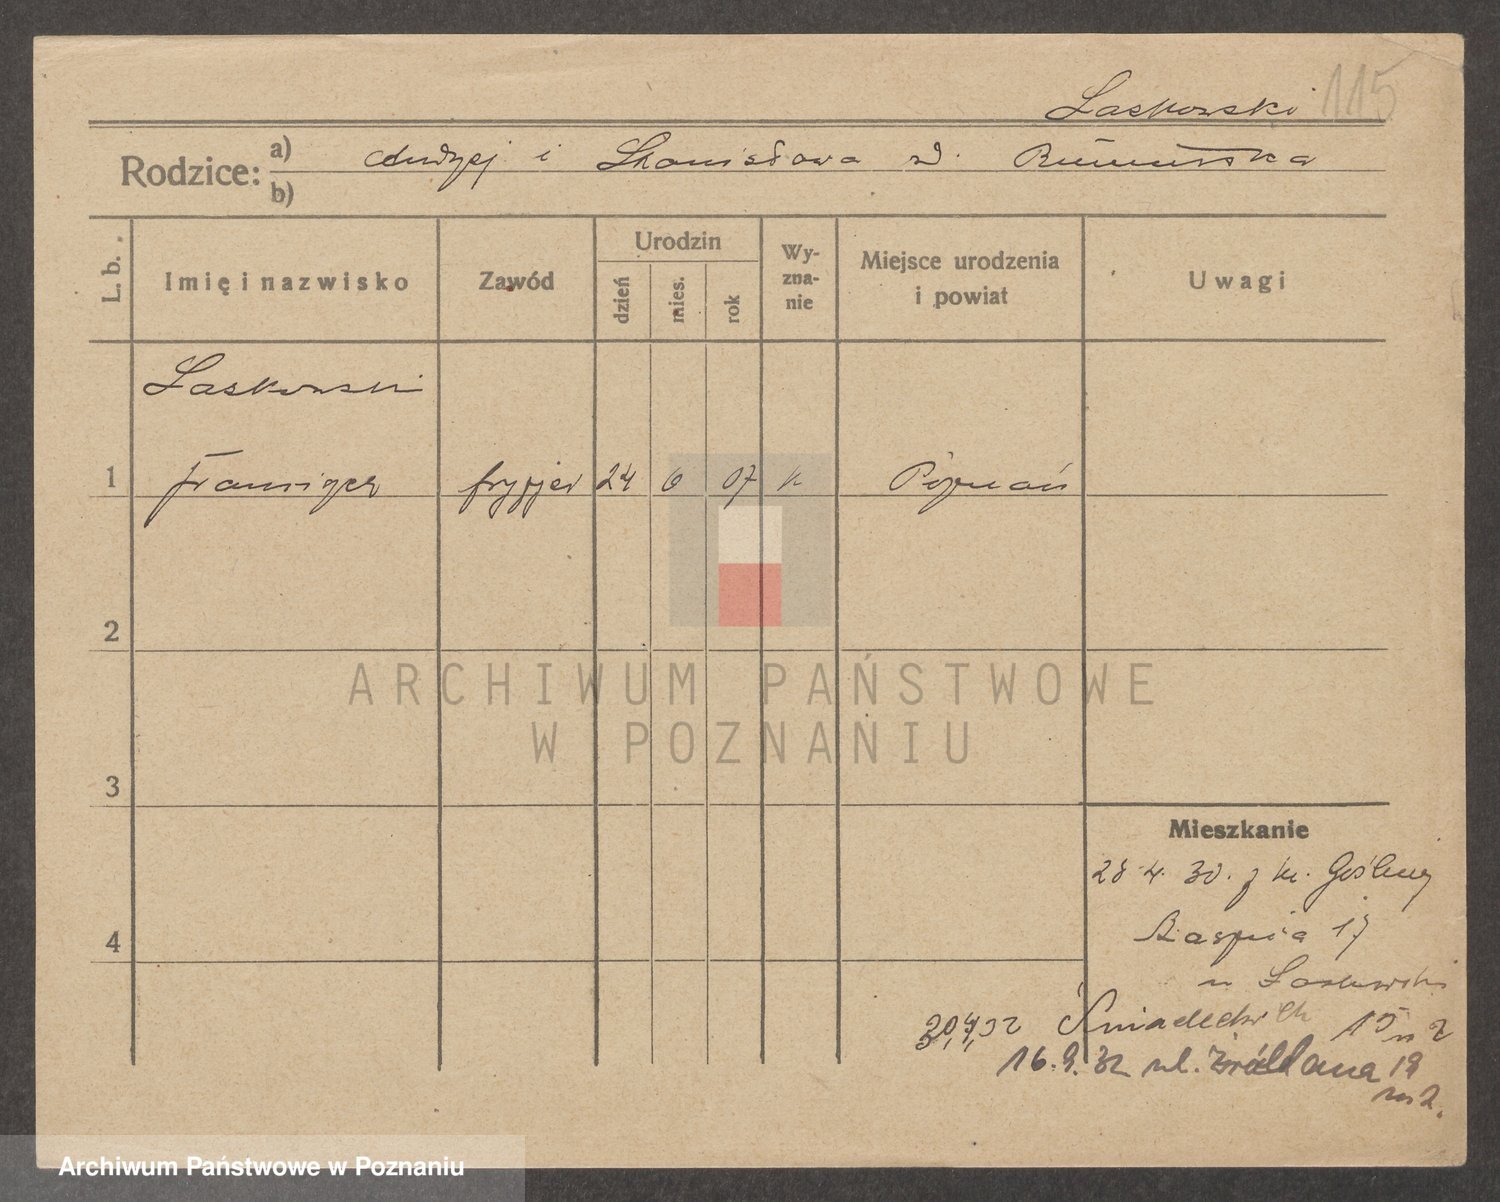 Laskowski 115
Rodzice: a) Andrzej i Stanisława z d.
b)
L. b.
Imię i nazwisko
Zawód
Urodzin
dzień
mies.
rok
Wy-
zna-
nie
Miejsce urodzenia
i powiat
Uwagi
Laskowski
1 Franciszek fryzjer 24 6 07 k Poznań
2
3
4
Mieszkanie
28.4.30. z M. Gośliny
17
u Laskowski
32 Śniadeckich 15 m 2
16.9.32 ul. Źródlana 19
m 2.
ARCHIWUM PAŃSTWOWE
W POZNANIU
Archiwum Państwowe w Poznaniu